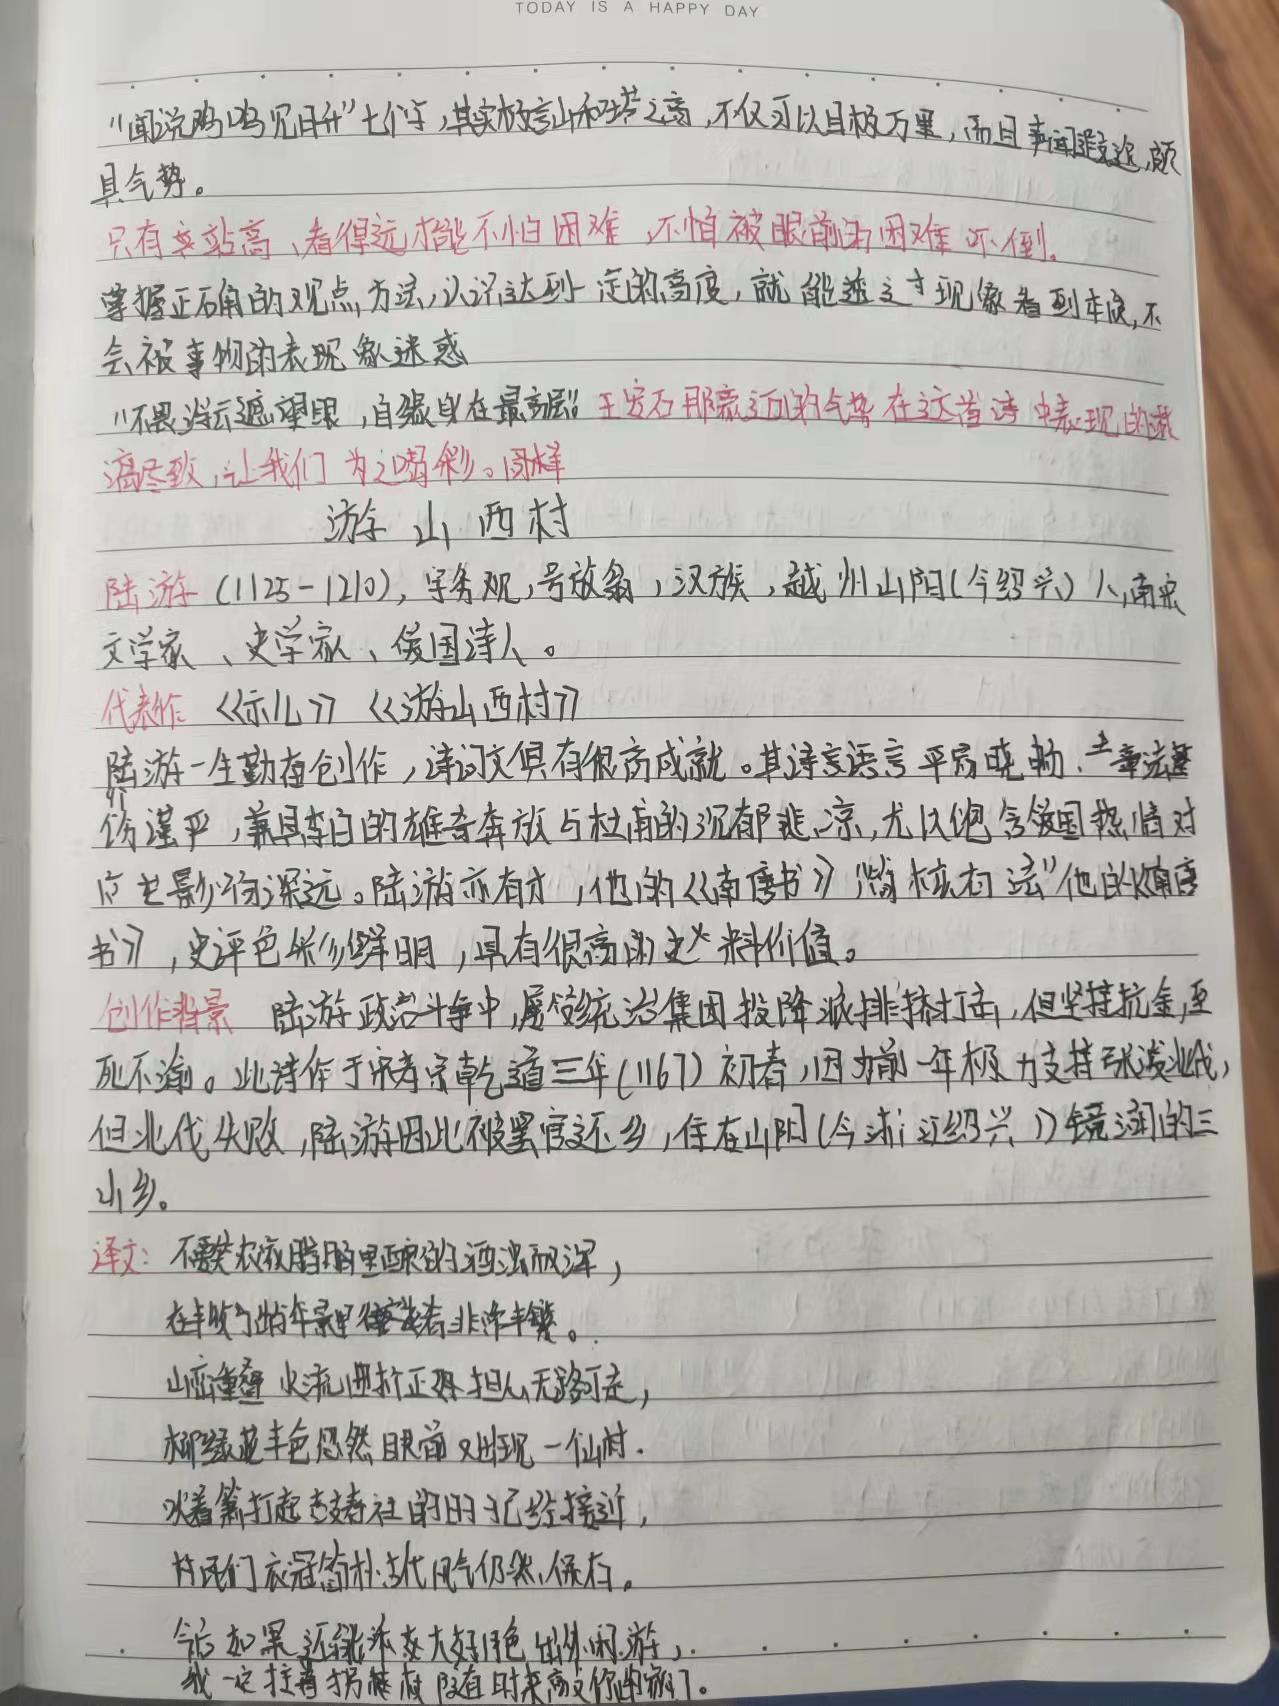 TODAY IS A HAPPY DAY
"闻说鸡鸣见日升"七个字，其实极言山和塔之高，不仅可以目极万里，而且事闻遐迩，颇
具气势。
只有站高、看得远才能不怕困难，不怕被眼前的困难吓倒。
掌握正确的观点方法，认识达到一定的高度，就能透过现象看到本质，不
会被事物的表现象迷惑
"不畏浮云遮望眼，自缘身在最高层"王安石那豪迈的气势在这首诗中表现的淋
漓尽致，让我们为之喝彩。同样
游山西村
陆游（1125-1210），字务观，号放翁，汉族，越州山阴（今绍兴）人，南宋
文学家、史学家、爱国诗人。
代表作 《示儿》《游山西村》
陆游一生勤在创作，诗词文俱有很高成就。其诗言语言平易晓畅、章法整
饬谨严，兼具李白的雄奇奔放与杜甫的沉郁悲凉，尤以饱含爱国热情对
后世影响深远。陆游亦有才，他的《南唐书》"简核有法"他的《南唐
书》，史评色彩鲜明，具有很高的史料价值。
创作背景 陆游政治斗争中，屡领统治集团投降派排挤打击，但坚持抗金，至
死不渝。此诗作于宋孝宗乾道三年（1167）初春，因为前一年极力支持张浚北伐，
但北伐失败，陆游因此被罢官还乡，住在山阴（今浙江绍兴）镜湖的三
山乡。
译文：不要笑农家腊月里酿的酒浊而浑，
在丰收的年景里待客菜肴非常丰繁。
山峦重叠水流曲折正担心无路可走，
柳绿花丰色忽然眼前又出现一个山村．
吹着箫打起鼓春社的日子已经接近，
村民们衣冠简朴古代风气仍然保存。
今后如果还能乘大好月色出外闲游，
我一定拄着拐杖随时来敲你的家门。